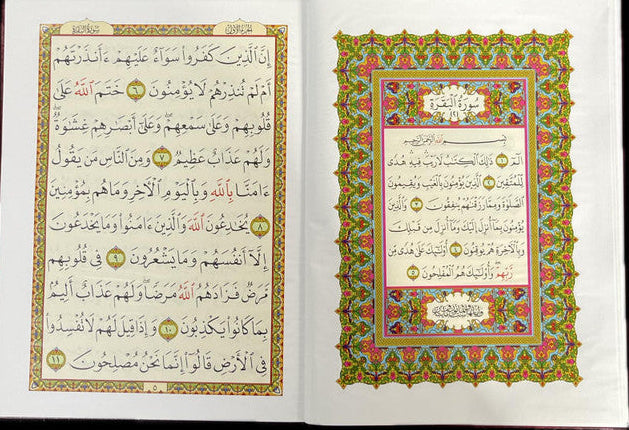 سُورَةُ البَقَرَةِ
بِسْمِ اللَّهِ الرَّحْمَٰنِ الرَّحِيمِ
الٓمٓ ١ ذَٰلِكَ ٱلْكِتَٰبُ لَا رَيْبَ فِيهِ هُدًى
لِّلْمُتَّقِينَ ٢ ٱلَّذِينَ يُؤْمِنُونَ بِٱلْغَيْبِ وَيُقِيمُونَ
ٱلصَّلَوٰةَ وَمِمَّا رَزَقْنَٰهُمْ يُنفِقُونَ ٣ وَٱلَّذِينَ
يُؤْمِنُونَ بِمَآ أُنزِلَ إِلَيْكَ وَمَآ أُنزِلَ مِن قَبْلِكَ
وَبِٱلْءَاخِرَةِ هُمْ يُوقِنُونَ ٤ أُو۟لَٰٓئِكَ عَلَىٰ هُدًى مِّن
رَّبِّهِمْ وَأُو۟لَٰٓئِكَ هُمُ ٱلْمُفْلِحُونَ ٥
الجزء الأول سورة البقرة
إِنَّ ٱلَّذِينَ كَفَرُوا۟ سَوَآءٌ عَلَيْهِمْ ءَأَنذَرْتَهُمْ
أَمْ لَمْ تُنذِرْهُمْ لَا يُؤْمِنُونَ ٦ خَتَمَ ٱللَّهُ عَلَىٰ
قُلُوبِهِمْ وَعَلَىٰ سَمْعِهِمْ ۖ وَعَلَىٰٓ أَبْصَٰرِهِمْ غِشَٰوَةٌ ۖ
وَلَهُمْ عَذَابٌ عَظِيمٌ ٧ وَمِنَ ٱلنَّاسِ مَن يَقُولُ
ءَامَنَّا بِٱللَّهِ وَبِٱلْيَوْمِ ٱلْءَاخِرِ وَمَا هُم بِمُؤْمِنِينَ
٨ يُخَٰدِعُونَ ٱللَّهَ وَٱلَّذِينَ ءَامَنُوا۟ وَمَا يَخْدَعُونَ
إِلَّآ أَنفُسَهُمْ وَمَا يَشْعُرُونَ ٩ فِى قُلُوبِهِم
مَّرَضٌ فَزَادَهُمُ ٱللَّهُ مَرَضًا ۖ وَلَهُمْ عَذَابٌ أَلِيمٌۢ
بِمَا كَانُوا۟ يَكْذِبُونَ ١٠ وَإِذَا قِيلَ لَهُمْ لَا تُفْسِدُوا۟
فِى ٱلْأَرْضِ قَالُوٓا۟ إِنَّمَا نَحْنُ مُصْلِحُونَ ١١
٥